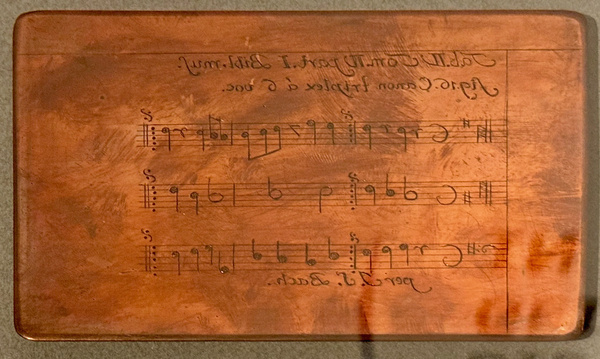 Tab.IV Tom.IV part.I Bibl.mus.
fig.16 Canon triplex á 6 voc.
per J. S. Bach.